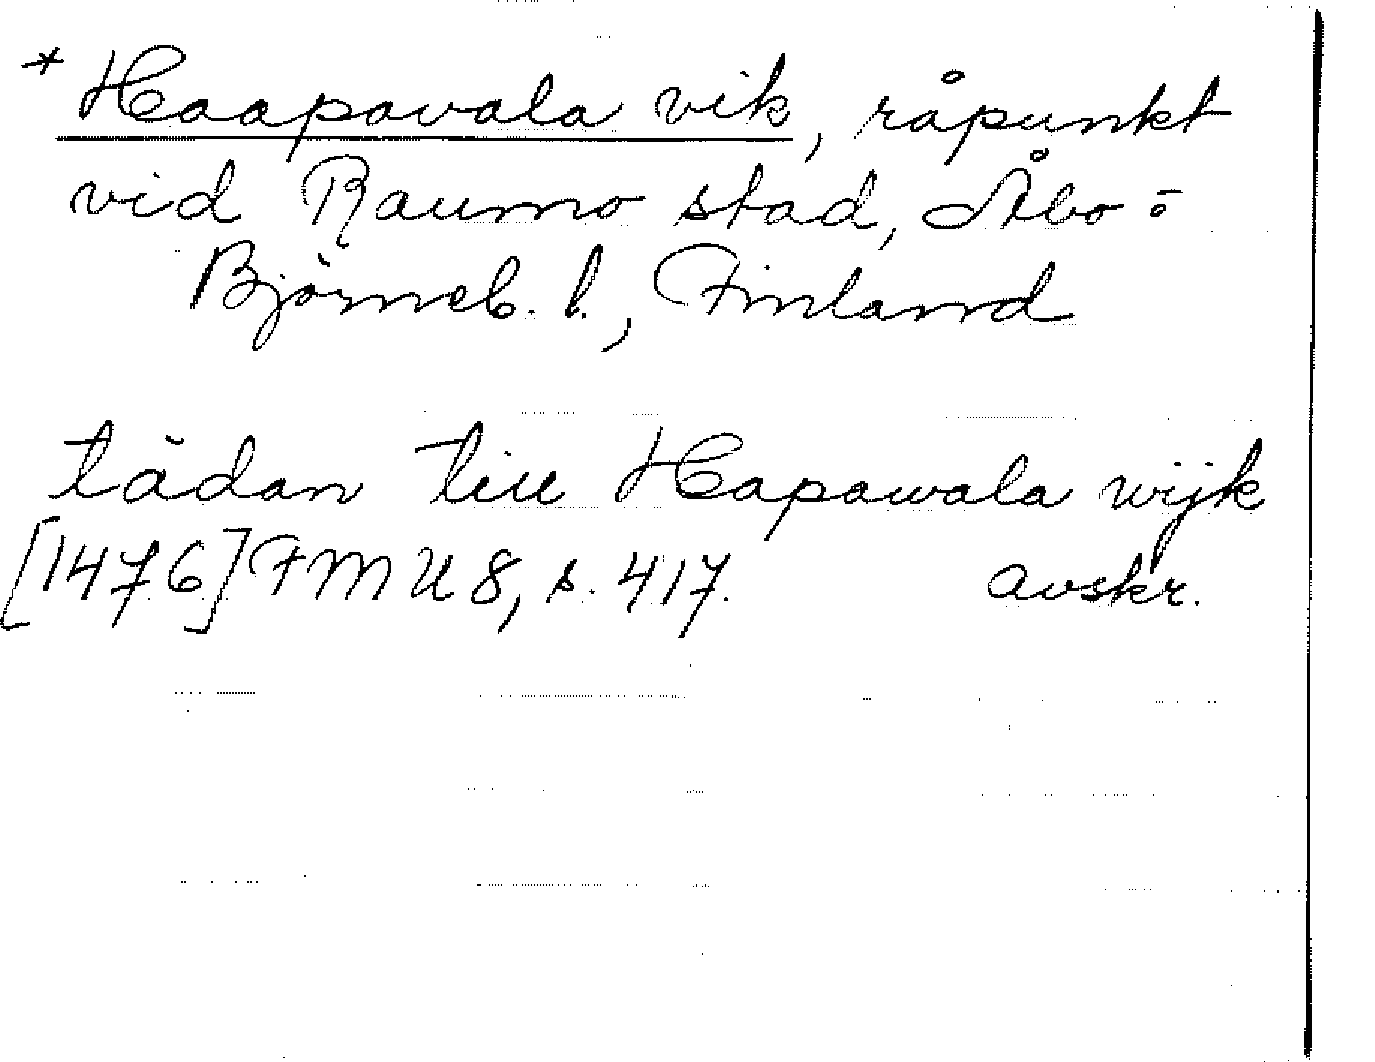 * Haapavala vik, råpunkt
vid Raumo stad, Åbo o
Björneb. l., Finland
tädan till Hapawala wijk
[1476] FMU 8, s. 417. avskr.